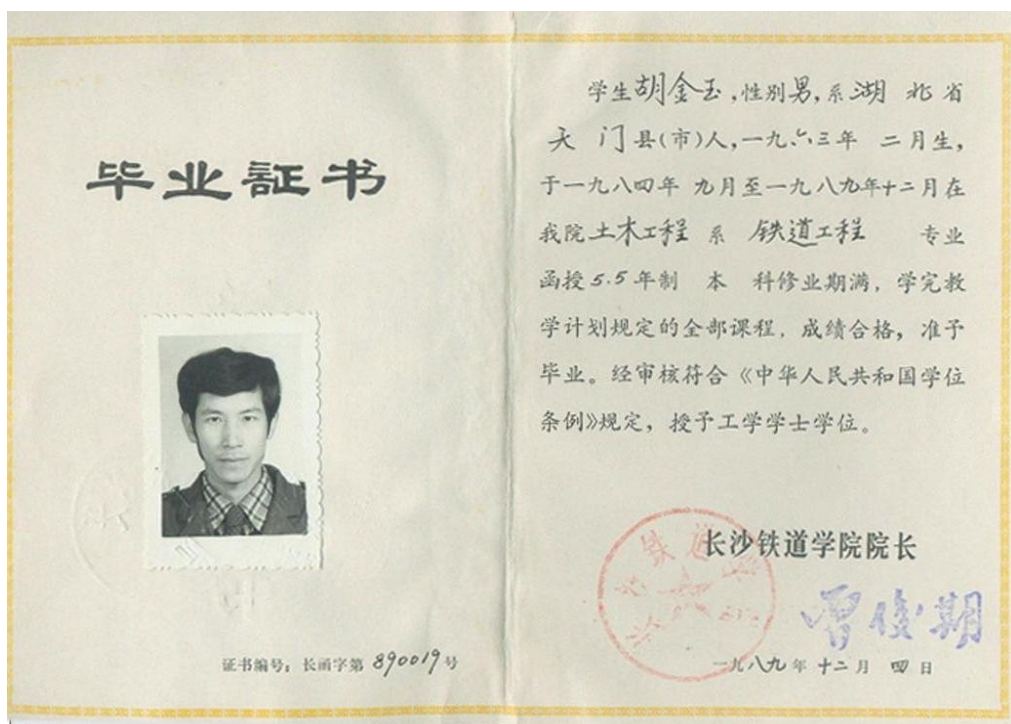 毕业証书
证书编号：长函字第890019号
学生胡金玉，性别男，系湖北省
天门县(市)人，一九六三年 二月生，
于一九八四年 九月至一九八九年十二月在
我院土木工程系 铁道工程 专业
函授5.5年制 本 科修业期满，学完教
学计划规定的全部课程，成绩合格，准予
毕业。经审核符合《中华人民共和国学位
条例》规定，授予工学学士学位。
长沙铁道学院院长
曾俊期
一九八九年十二月 四日